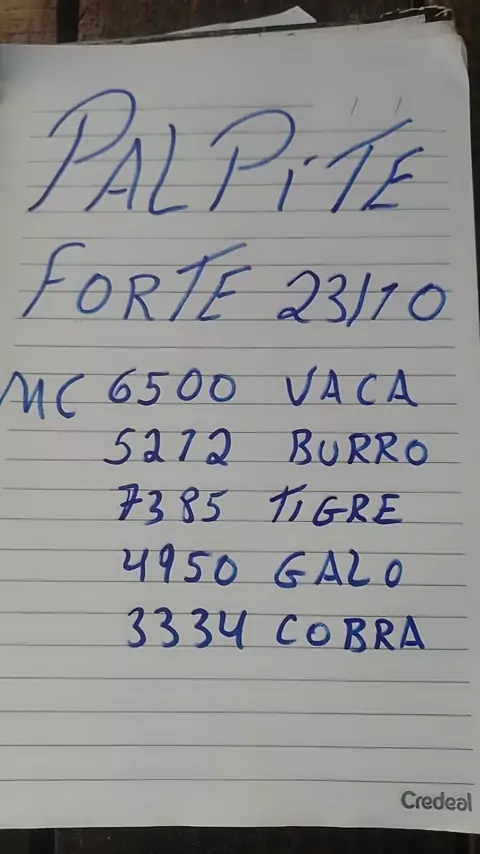 PALPiTE
FORTE 23/10
MC 6500 VACA
5212 BURRO
7385 TIGRE
4950 GALO
3334 COBRA
Credeal